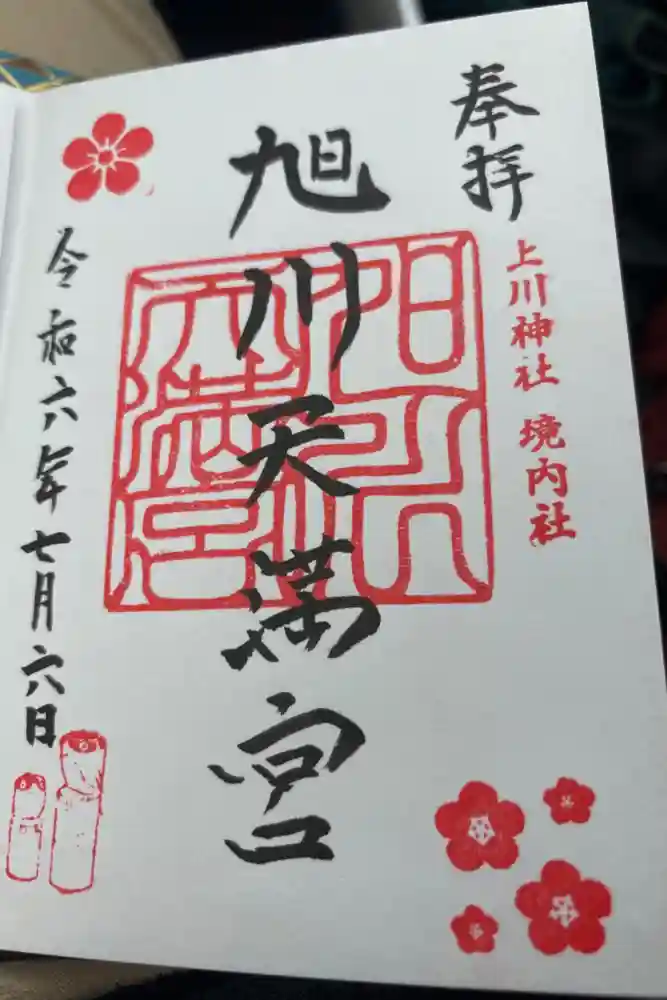 奉拝
上川神社 境内社
旭川天満宮
令和六年七月六日